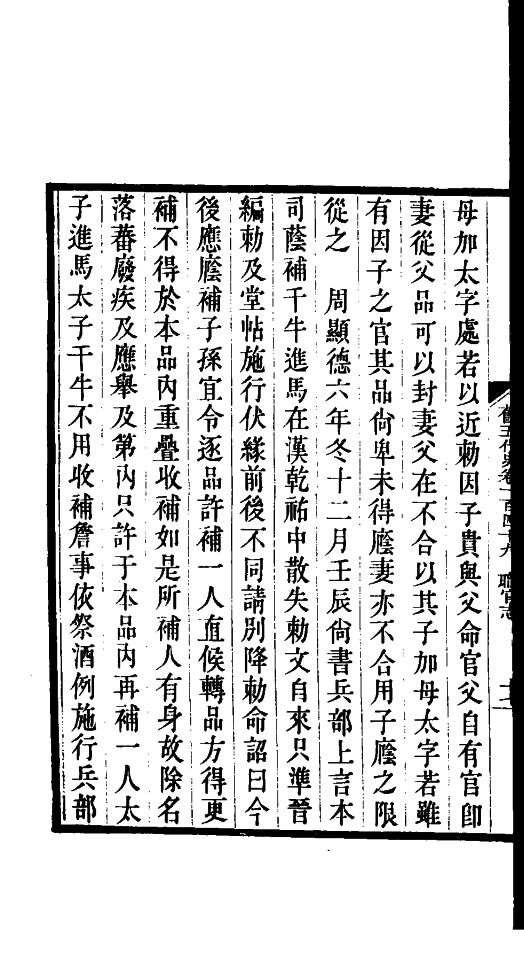 母加太字處若以近勅因子貴與父命官父自有官卽
妻從父品可以封妻父在不合以其子加母太字若雖
有因子之官其品尙卑未得廕妻亦不合用子廕之限
從之　周顯德六年冬十二月壬辰尙書兵部上言本
司蔭補千牛進馬在漢乾祐中散失勅文自來只準晉
編勅及堂帖施行伏緣前後不同請別降勅命詔曰今
後應廕補子孫宜令逐品許補一人直候轉品方得更
補不得於本品內重疊收補如是所補人有身故除名
落蕃廢疾及應舉及第內只許于本品內再補一人太
子進馬太子千牛不用收補詹事依祭酒例施行兵部
舊五代史卷一百四十九　職官志